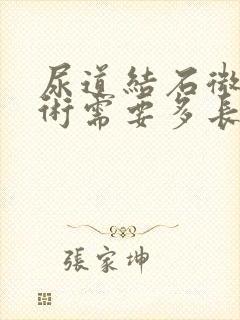 尿道結石微
術需要多長
張家坤